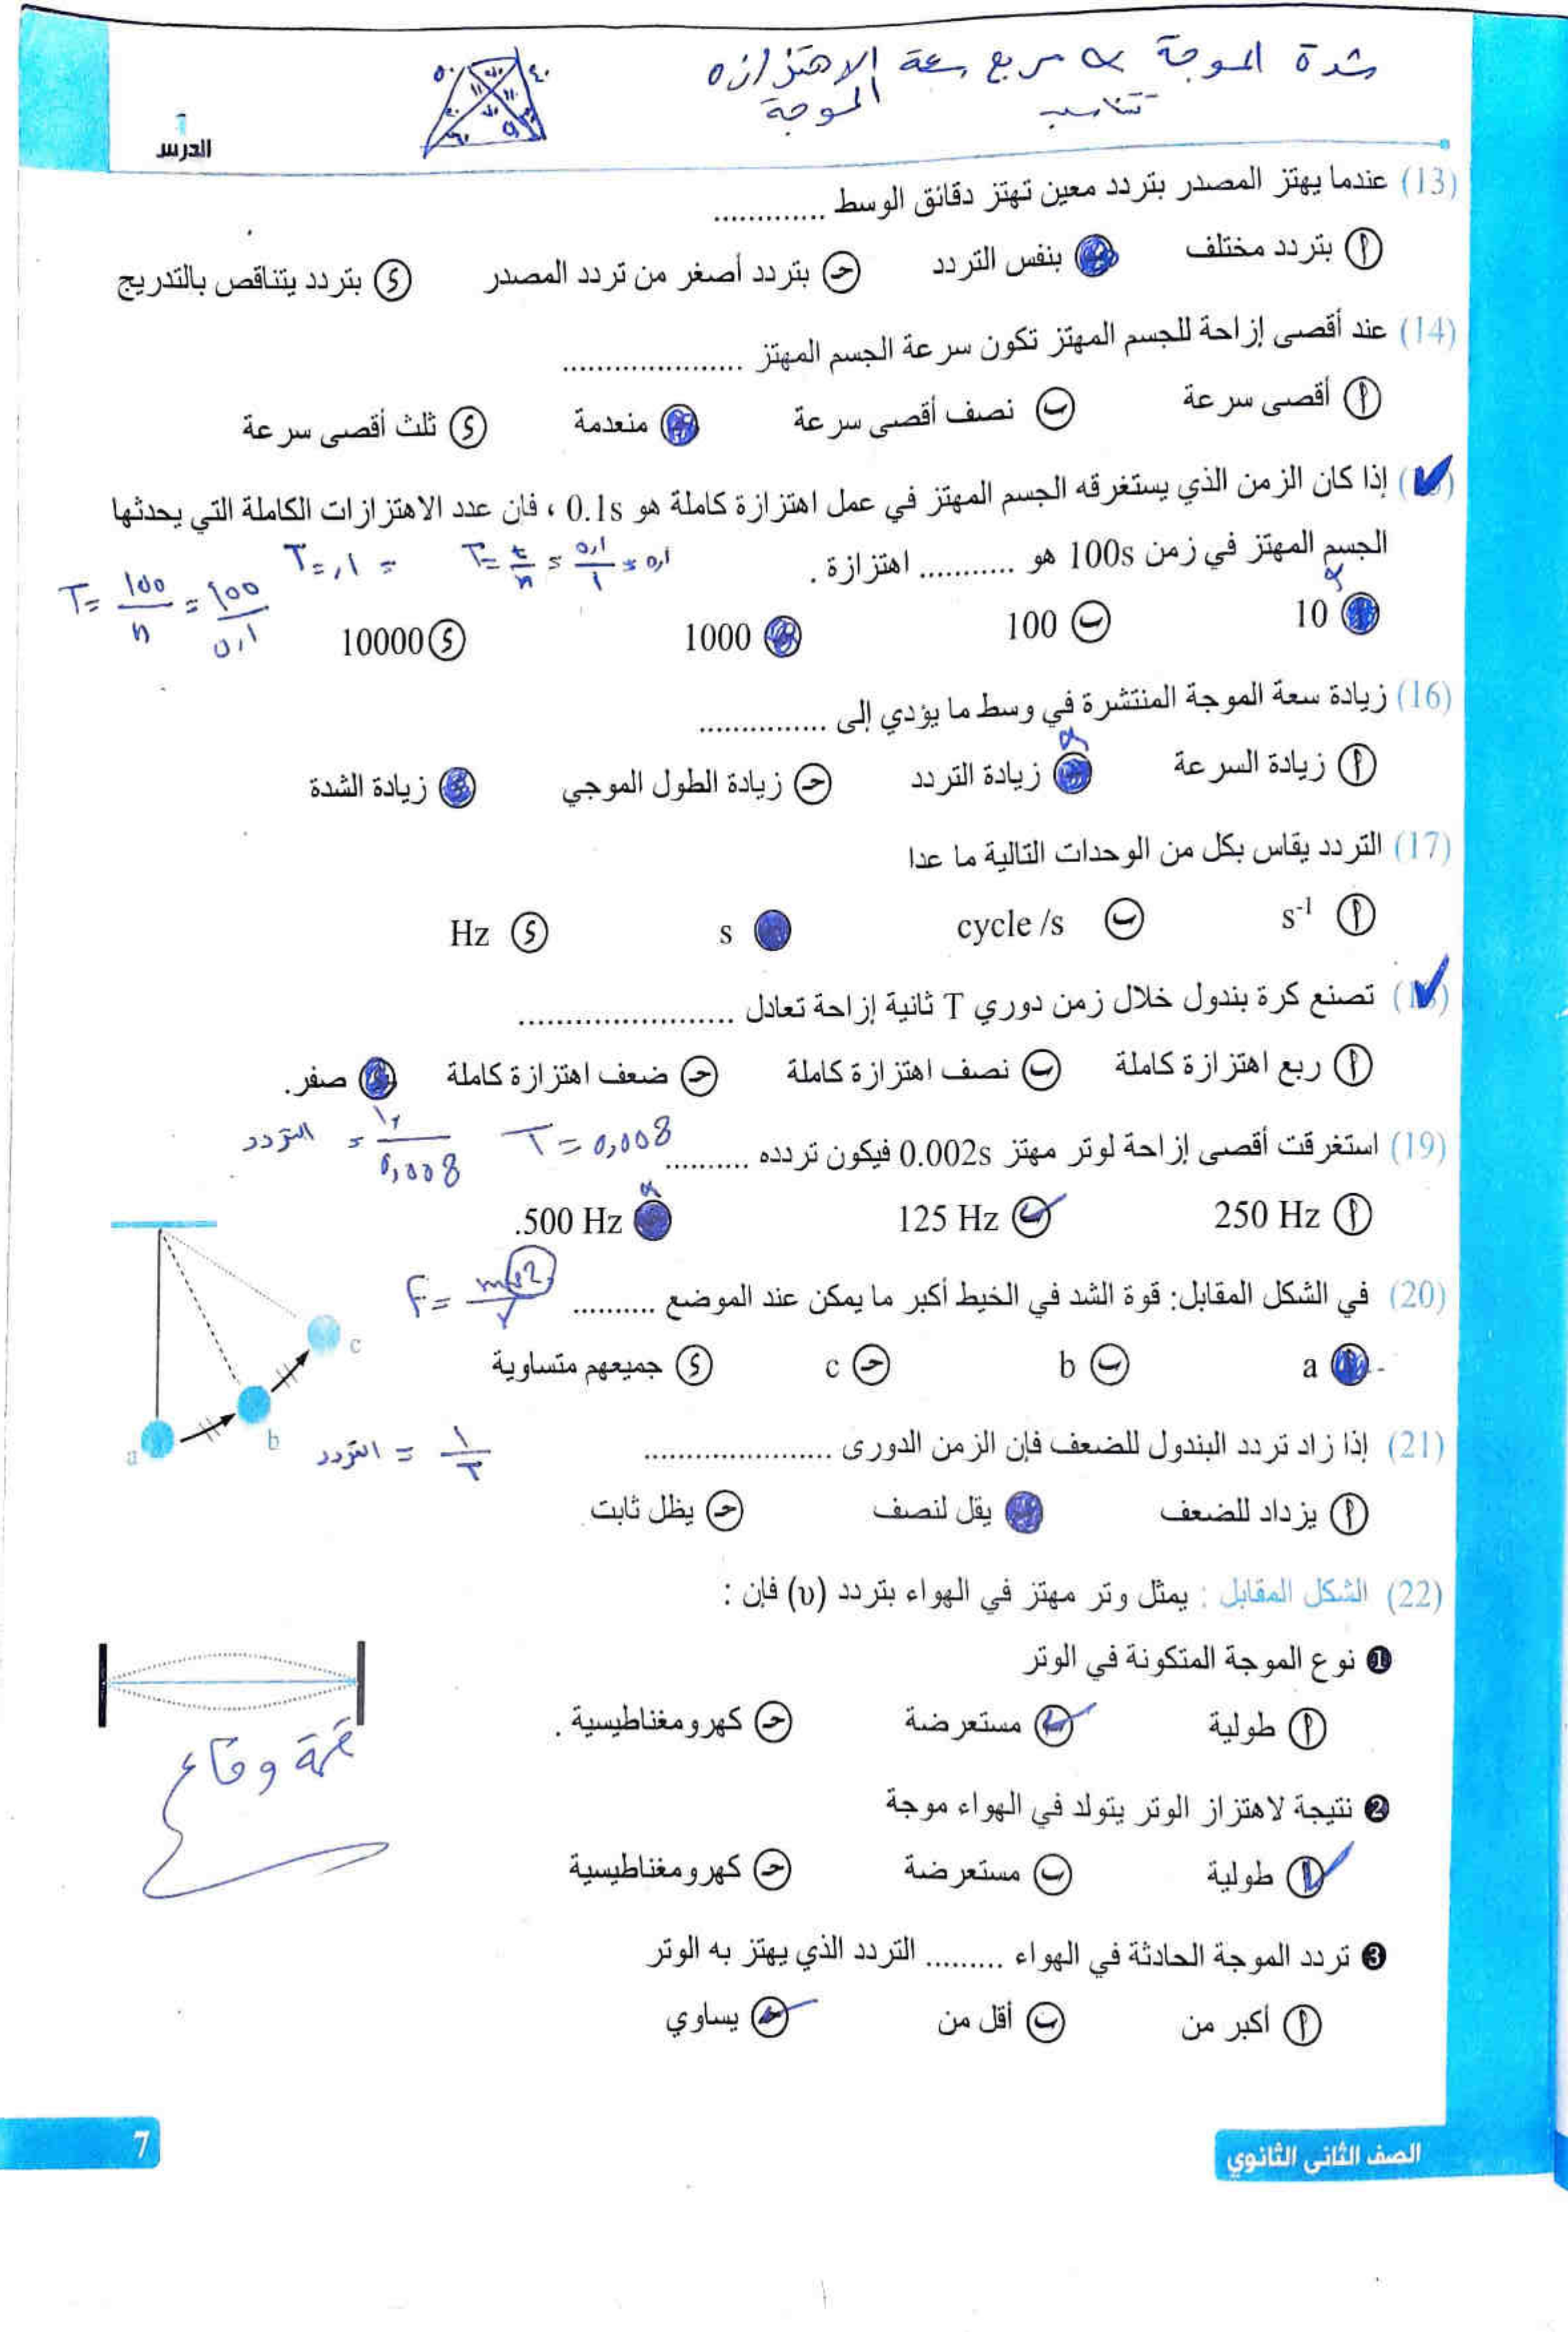 شدة الموجة ∝ مربع سعة الاهتزازه
تناسب الموجة
الدرس
1
(13) عندما يهتز المصدر بتردد معين تهتز دقائق الوسط .............
أ بتردد مختلف ب بنفس التردد ج بتردد أصغر من تردد المصدر د بتردد يتناقص بالتدريج
(14) عند أقصى إزاحة للجسم المهتز تكون سرعة الجسم المهتز .....................
أ أقصى سرعة ب نصف أقصى سرعة ج منعدمة د ثلث أقصى سرعة
إذا كان الزمن الذي يستغرقه الجسم المهتز في عمل اهتزازة كاملة هو 0.1s ، فان عدد الاهتزازات الكاملة التي يحدثها
الجسم المهتز في زمن 100s هو ........... اهتزازة .
T = t/n = 0,1/1 = 0,1
T = ,1 =
T = 100/n = 100/0,1
أ 10 ب 100 ج 1000 د 10000
(16) زيادة سعة الموجة المنتشرة في وسط ما يؤدي إلى ...............
أ زيادة السرعة ب زيادة التردد ج زيادة الطول الموجي د زيادة الشدة
(17) التردد يقاس بكل من الوحدات التالية ما عدا
أ s⁻¹ ب cycle /s ج s د Hz
تصنع كرة بندول خلال زمن دوري T ثانية إزاحة تعادل .......................
أ ربع اهتزازة كاملة ب نصف اهتزازة كاملة ج ضعف اهتزازة كاملة د صفر.
(19) استغرقت أقصى إزاحة لوتر مهتز 0.002s فيكون تردده ..........
T = 0,008
التردد = 1/0,008
أ 250 Hz ب 125 Hz ج 500 Hz.
(20) في الشكل المقابل: قوة الشد في الخيط أكبر ما يمكن عند الموضع ..........
F = mv2/r
أ a ب b ج c د جميعهم متساوية
a
b
c
(21) إذا زاد تردد البندول للضعف فإن الزمن الدورى ......................
التردد = 1/T
أ يزداد للضعف ب يقل لنصف ج يظل ثابت
(22) الشكل المقابل : يمثل وتر مهتز في الهواء بتردد (υ) فإن :
❶ نوع الموجة المتكونة في الوتر
أ طولية ب مستعرضة ج كهرومغناطيسية .
قمة وقاع
❷ نتيجة لاهتزاز الوتر يتولد في الهواء موجة
أ طولية ب مستعرضة ج كهرومغناطيسية
❸ تردد الموجة الحادثة في الهواء ......... التردد الذي يهتز به الوتر
أ أكبر من ب أقل من ج يساوي
الصف الثانى الثانوي
7